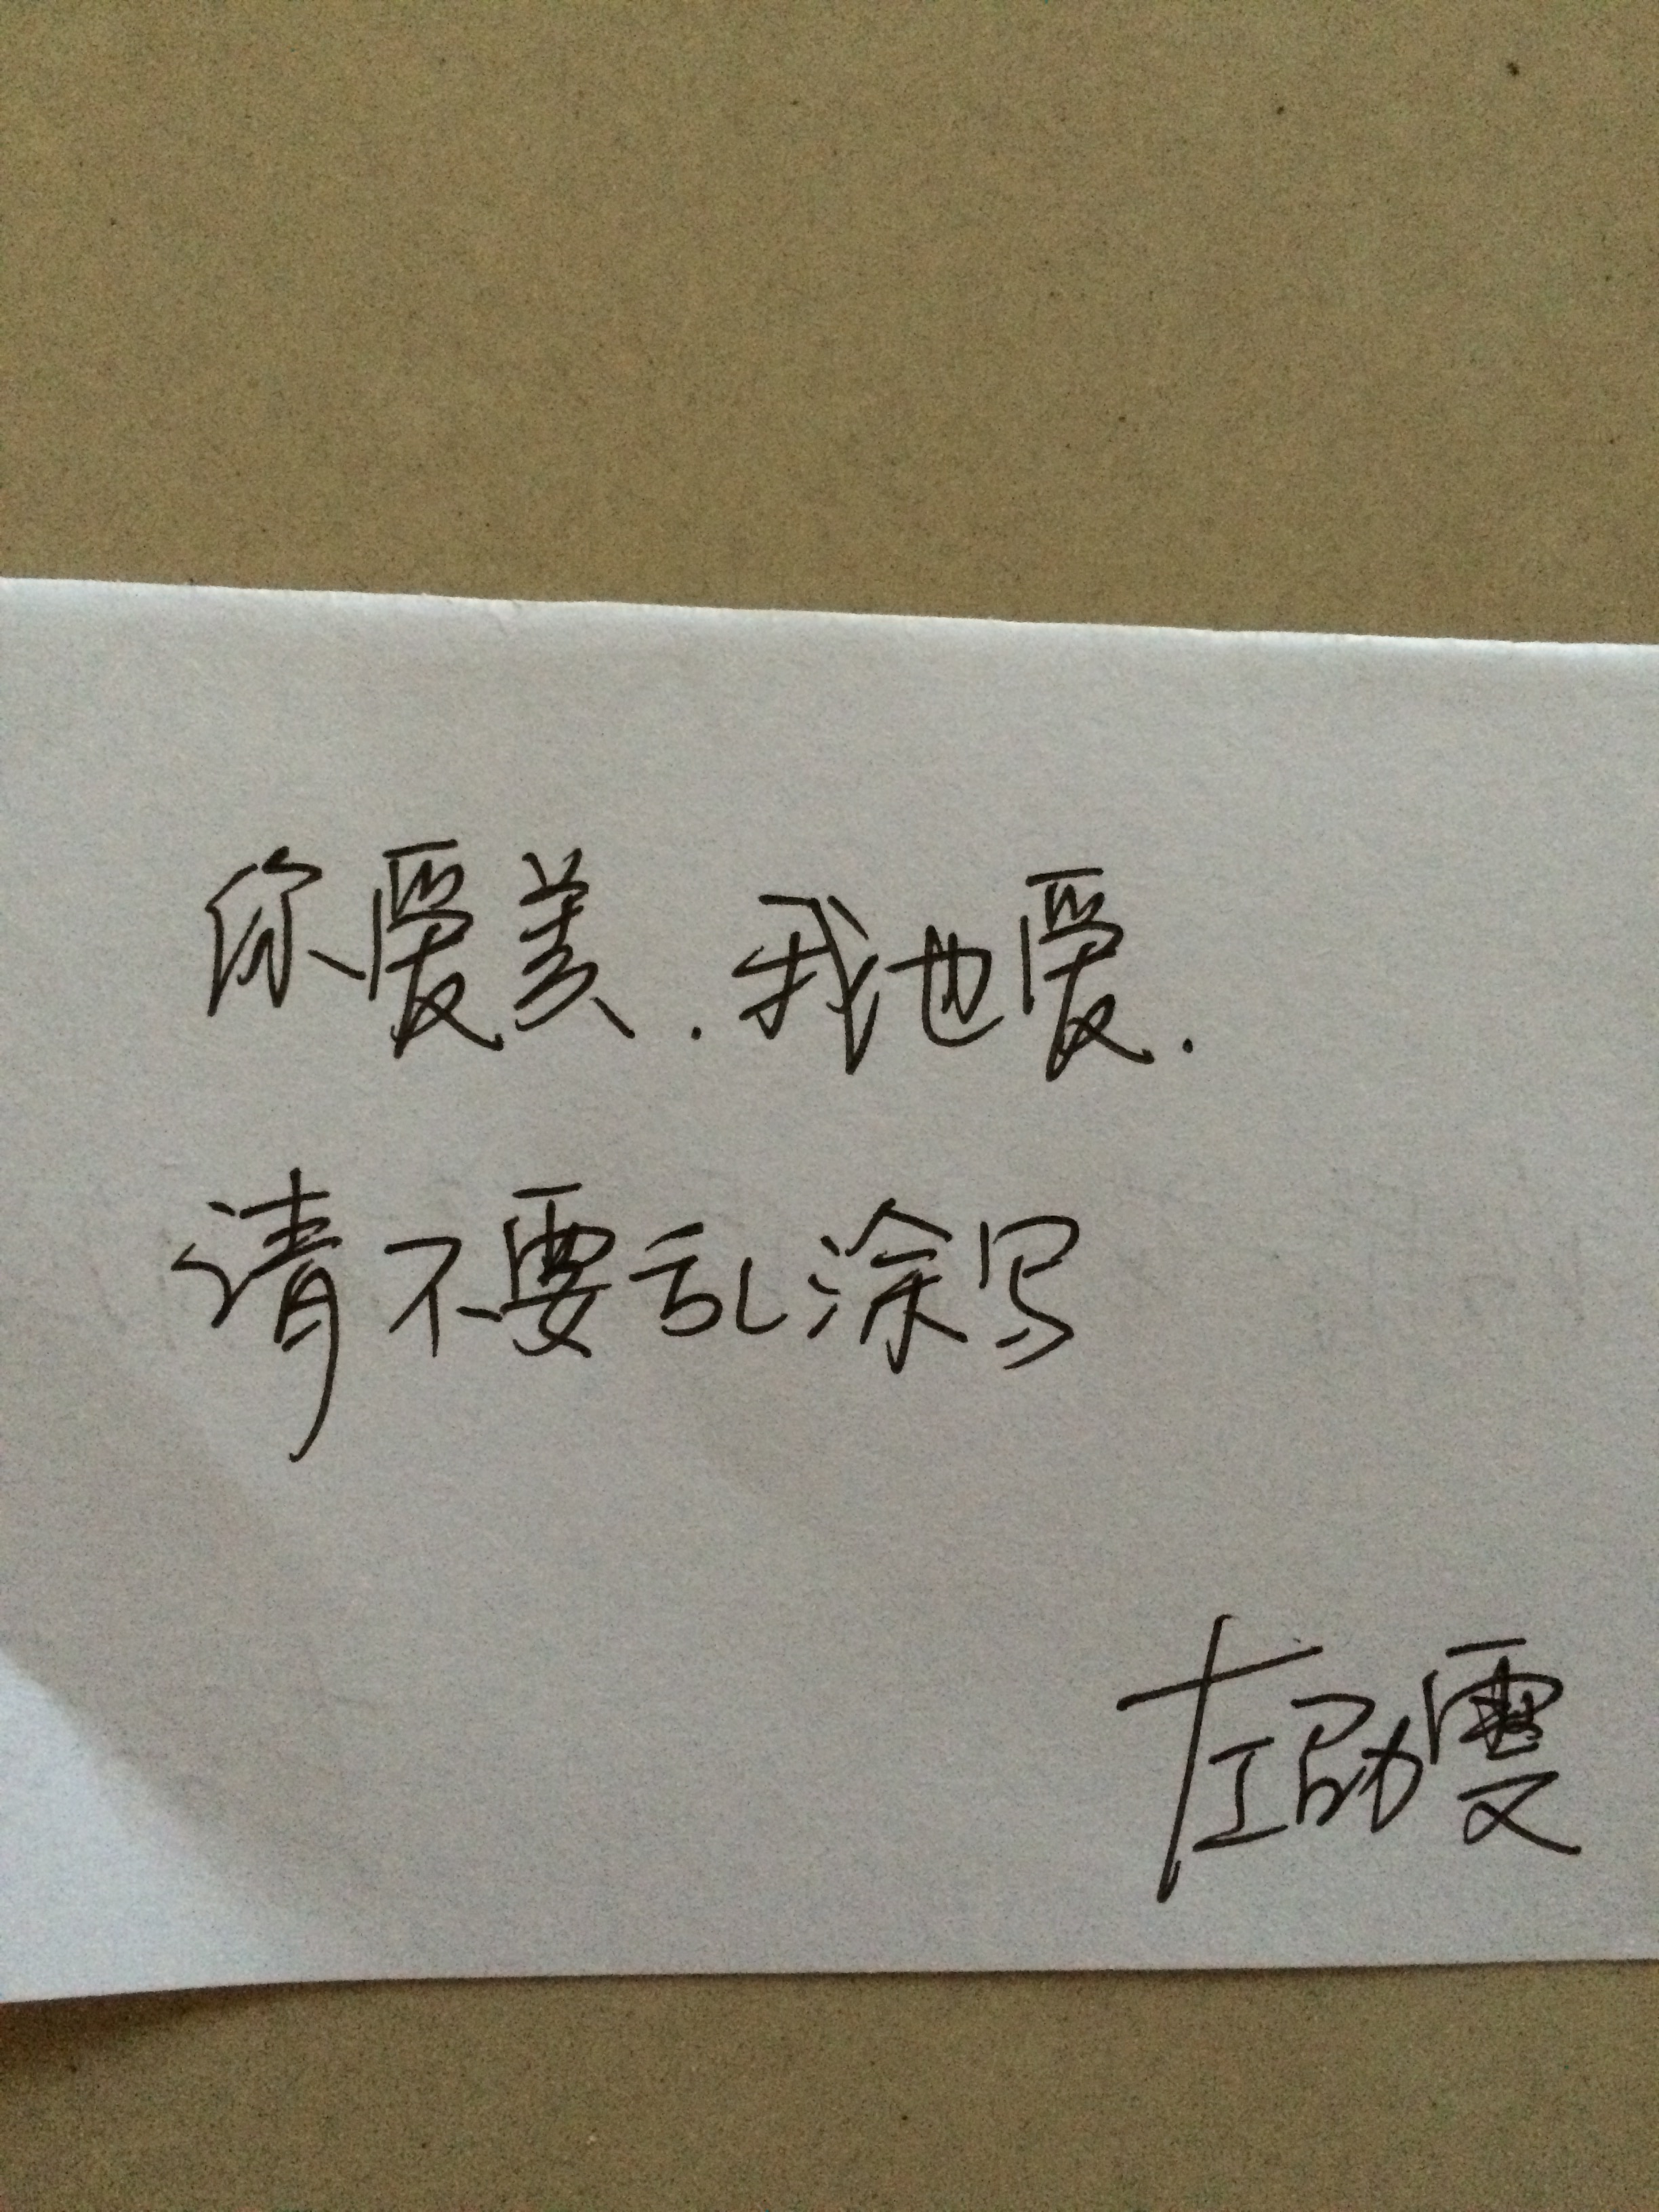 你爱美.我也爱.
请不要乱涂写
左